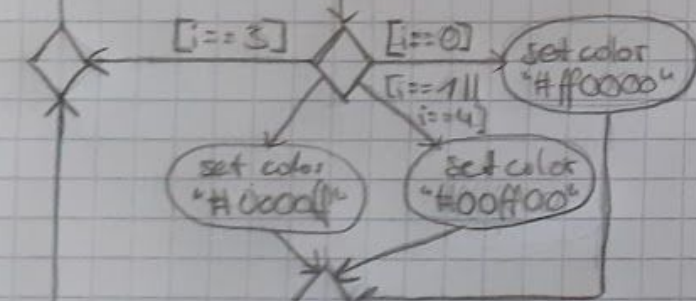 [i==3]
[i==0]
set color
"#ff0000"
[i==1||
i==4]
set color
"#0000ff"
set color
"#00ff00"